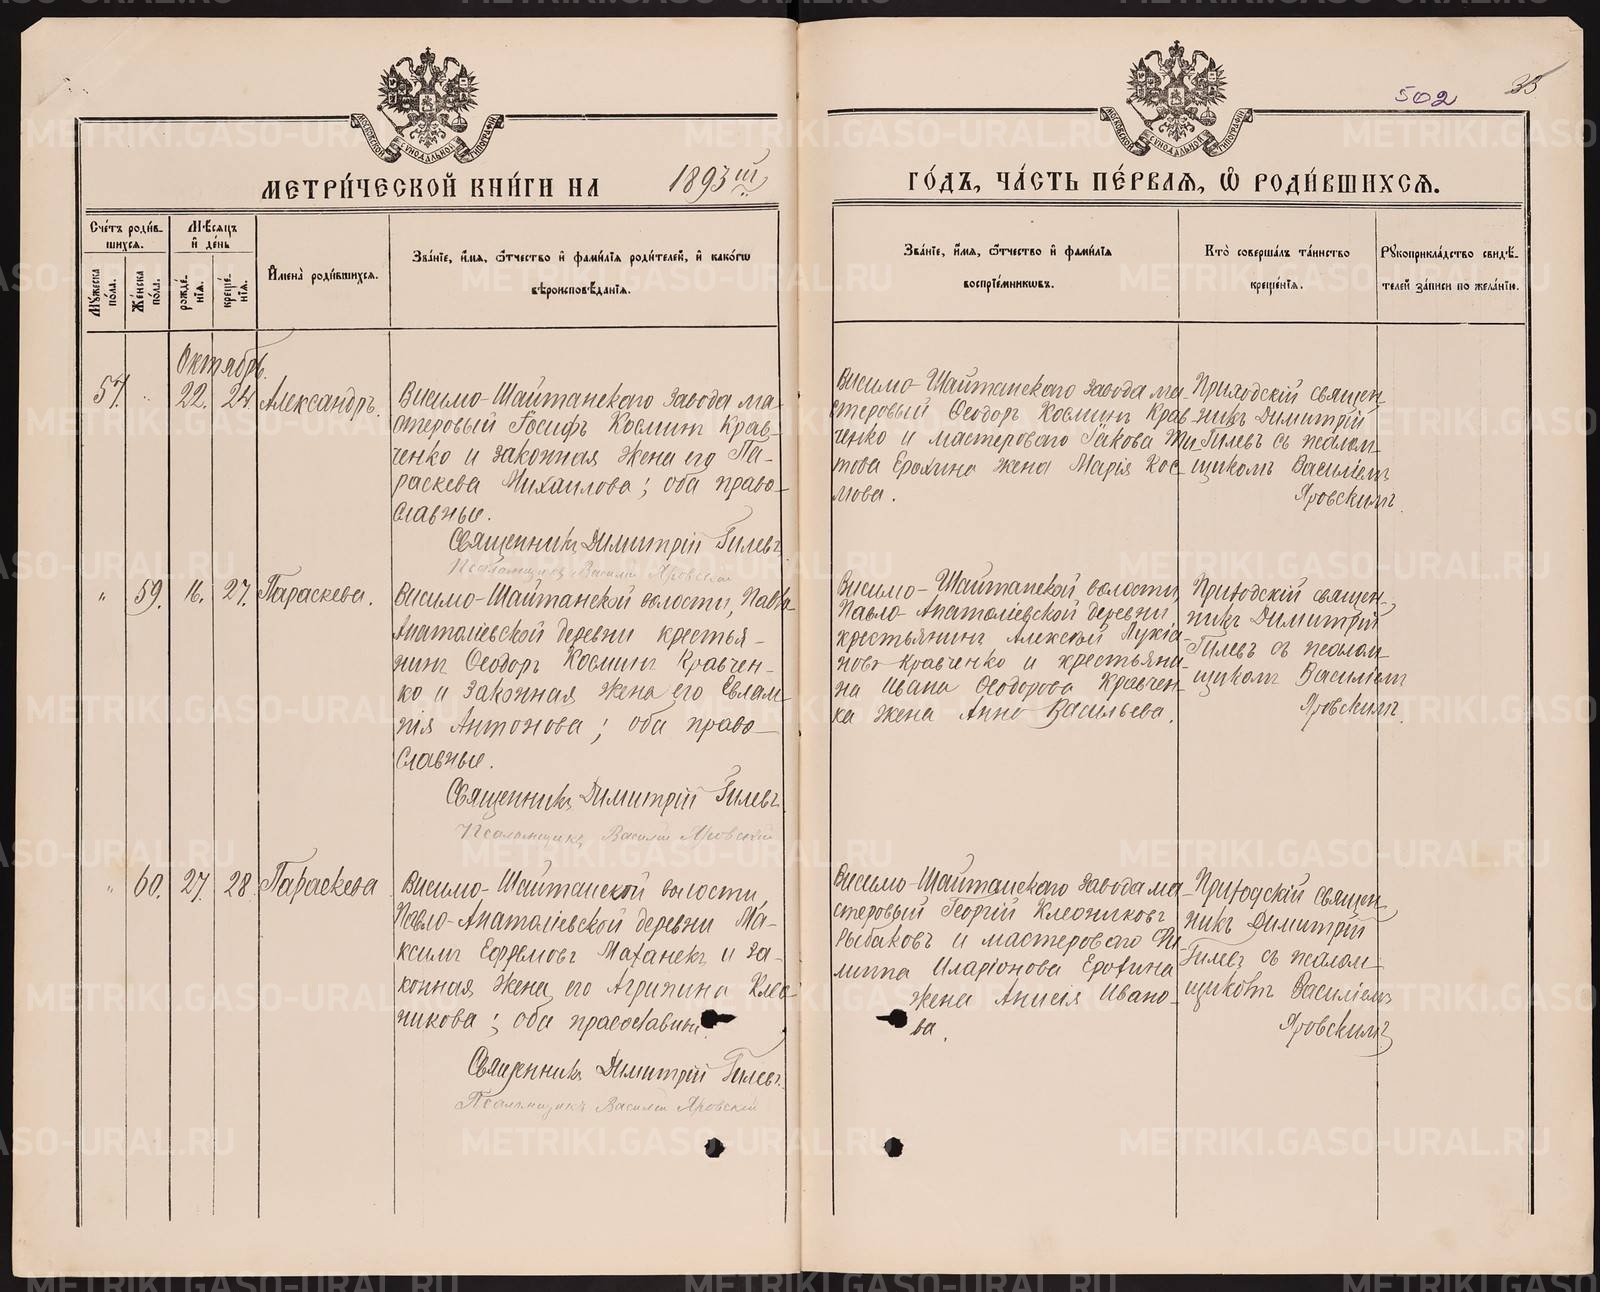 502
35
МОСКОВСКОЙ СѴНОДАЛЬНОЙ ТИПОГРАФІИ
МОСКОВСКОЙ СѴНОДАЛЬНОЙ ТИПОГРАФІИ
МЕТРИ́ЧЕСКОЙ КНИ́ГИ НА 1893й
ГО́ДЪ, ЧА́СТЬ ПЕ́РВАЯ, Ѡ РОДИ́ВШИХСЯ.
Сче́тъ роди́в-
шихся.
Мѣ́сяцъ
и де́нь
Мꙋжеска
по́ла.
Же́нска
по́ла.
рожде́-
нїя.
креще́-
нїя.
Имена̀ роди́вшихся.
Зва́нїе, и́мя, ѻ́тчество и фами́лїя роди́телей, и како́гѡ
вѣроисповѣ́данїя.
Зва́нїе, и́мя, ѻ́тчество и фами́лїя
воспрїе́мникѡвъ.
Кто̀ соверша́лъ та́инство
креще́нїя.
Рꙋкоприкла́дство свидѣ́-
телей за́писи по жела́нїю.
Октябрь.
57. 22. 24. Александръ.
Висимо-Шайтанскаго завода ма-
стеровый Іосифъ Космин Крав-
ченко и законная жена его Па-
раскева Михаилова; оба право-
славные.
Священникъ Димитрій Гилевъ
Псаломщикъ Василій Яровскій
Висимо-Шайтанскаго завода ма-
стеровый Ѳеодоръ Косминъ Крав-
ченко и мастероваго Іакова Ти-
това Ерохина жена Марія Кос-
мова.
Приходскій священ-
никъ Димитрій
Гилевъ съ псалом-
щикомъ Василіемъ
Яровскимъ.
" 59. 16. 27. Параскева.
Висимо-Шайтанской волости, Павло-
Анатоліевской деревни крестья-
нинъ Ѳеодоръ Косминъ Кравчен-
ко и законная жена его Евлам-
пія Антонова; оба право-
славные.
Священникъ Димитрій Гилевъ
Псаломщикъ Василій Яровскій
Висимо-Шайтанской волости,
Павло-Анатоліевской деревни
крестьянинъ Алексѣй Лукіа-
новъ Кравченко и крестьяни-
на Ивана Ѳеодорова Кравчен-
ка жена Анна Васильева.
Приходскій священ-
никъ Димитрій
Гилевъ съ псалом-
щикомъ Василіемъ
Яровскимъ.
" 60. 27. 28. Параскева
Висимо-Шайтанской волости
Павло-Анатоліевской деревни Ма-
ксимъ Ефремовъ Маханекъ и за-
конная жена его Агрипина Клео-
никова; оба православны.
Священникъ Димитрій Гилевъ.
Псаломщикъ Василій Яровскій
Висимо-Шайтанскаго завода ма-
стеровый Георгій Клеониковъ
Рыбаковъ и мастероваго Фи-
липпа Иларіонова Ерохина
жена Анисія Ивано-
ва.
Приходскій священ-
никъ Димитрій
Гилевъ съ псалом-
щикомъ Василіемъ
Яровскимъ
METRIKI.GASO-URAL.RU